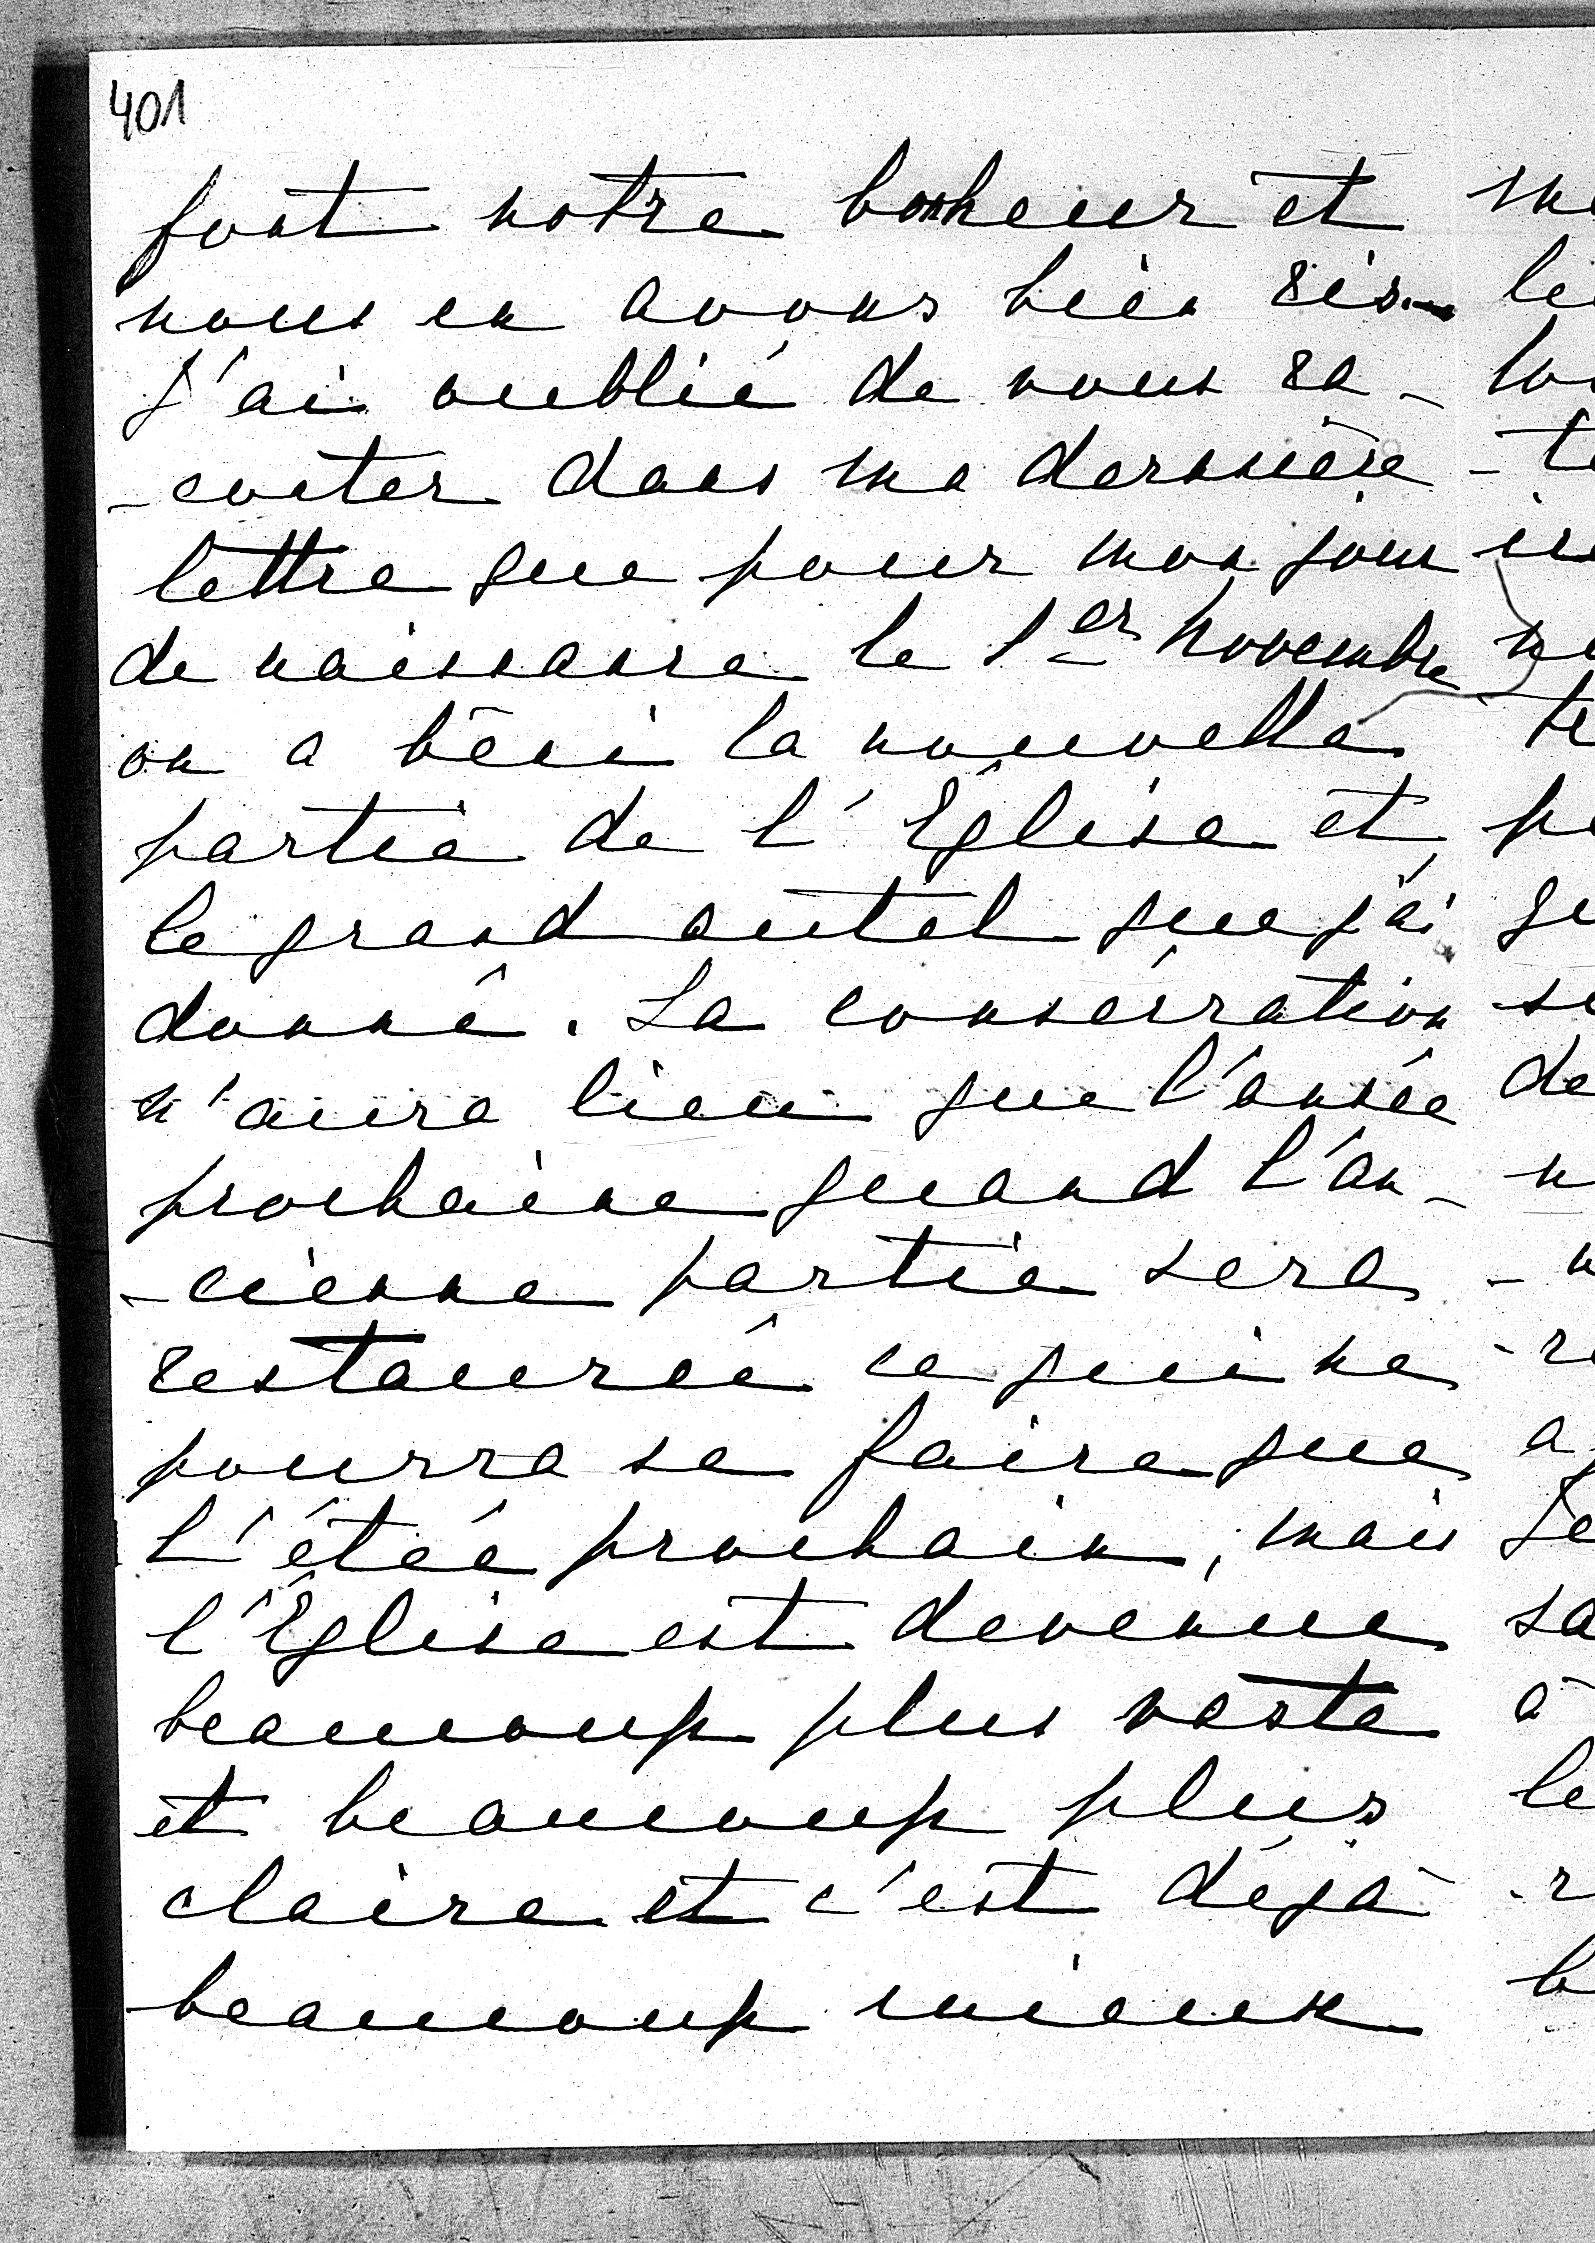 401
font notre bonheur et
nous en avons bien ris.
J'ai oublié de vous ra-
-conter dans ma dernière
lettre que pour mon jour
de naissance le 1er Novembre
on a béni la nouvelle
partie de l'Église et
le grand autel que j'ai
donné. La consécration
n'aura lieu que l'année
prochaine quand l'an-
-cienne partie sera
restaurée ce qui ne
pourra se faire que
l'étée prochain, mais
l'Église est devenue
beaucoup plus vaste
et beaucoup plus
claire et c'est déjà
beaucoup mieux